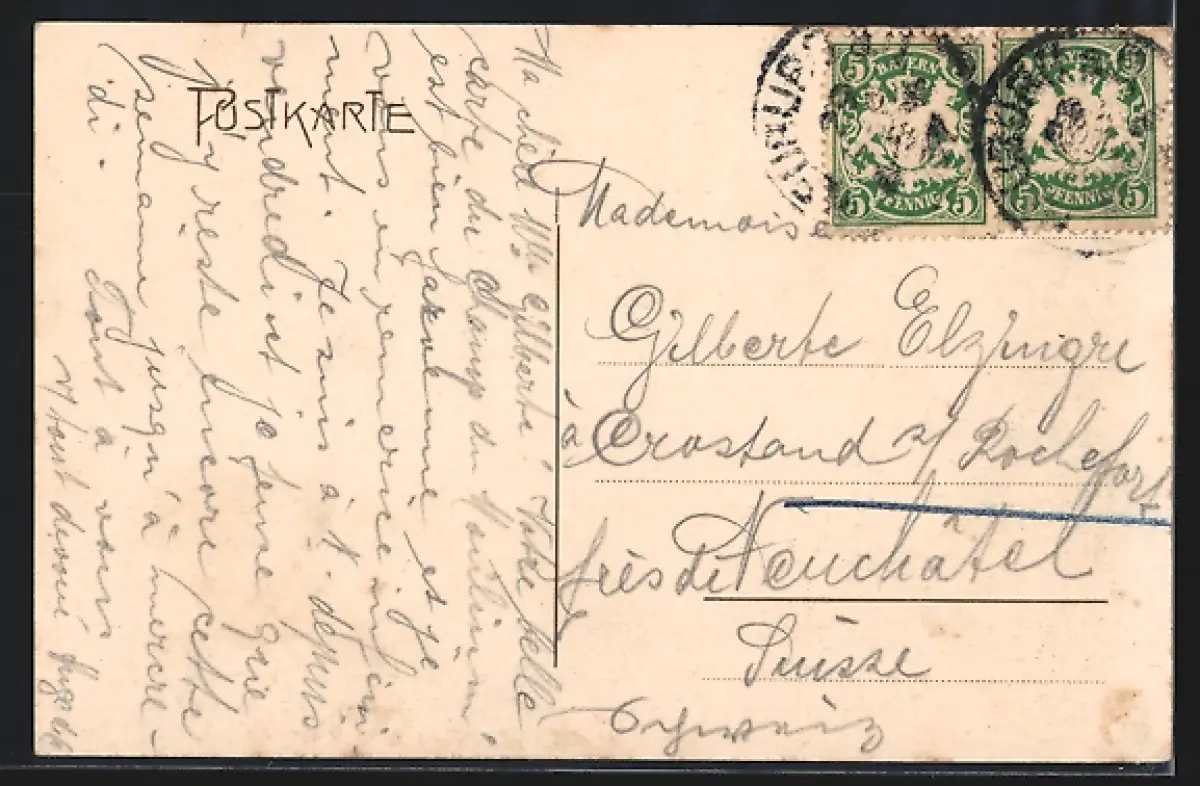 POSTKARTE
Ma chère Mlle Gilberte! Votre belle
carte du Champ du Moulin m'
est bien parvenue et je
vous en remercie infini
ment. Je suis à N. depuis
vendredi et je pense que
j'y reste encore cette
semaine jusqu'à mercre-
di. Tout à vous
votre tout dévoué
BAYERN
5 5
PFENNIG
BAYERN
5 5
PFENNIG
Mademoise
Gilberte Elzingre
à Crostand s/ Rochefort
près de Neuchâtel
Suisse
Schweiz